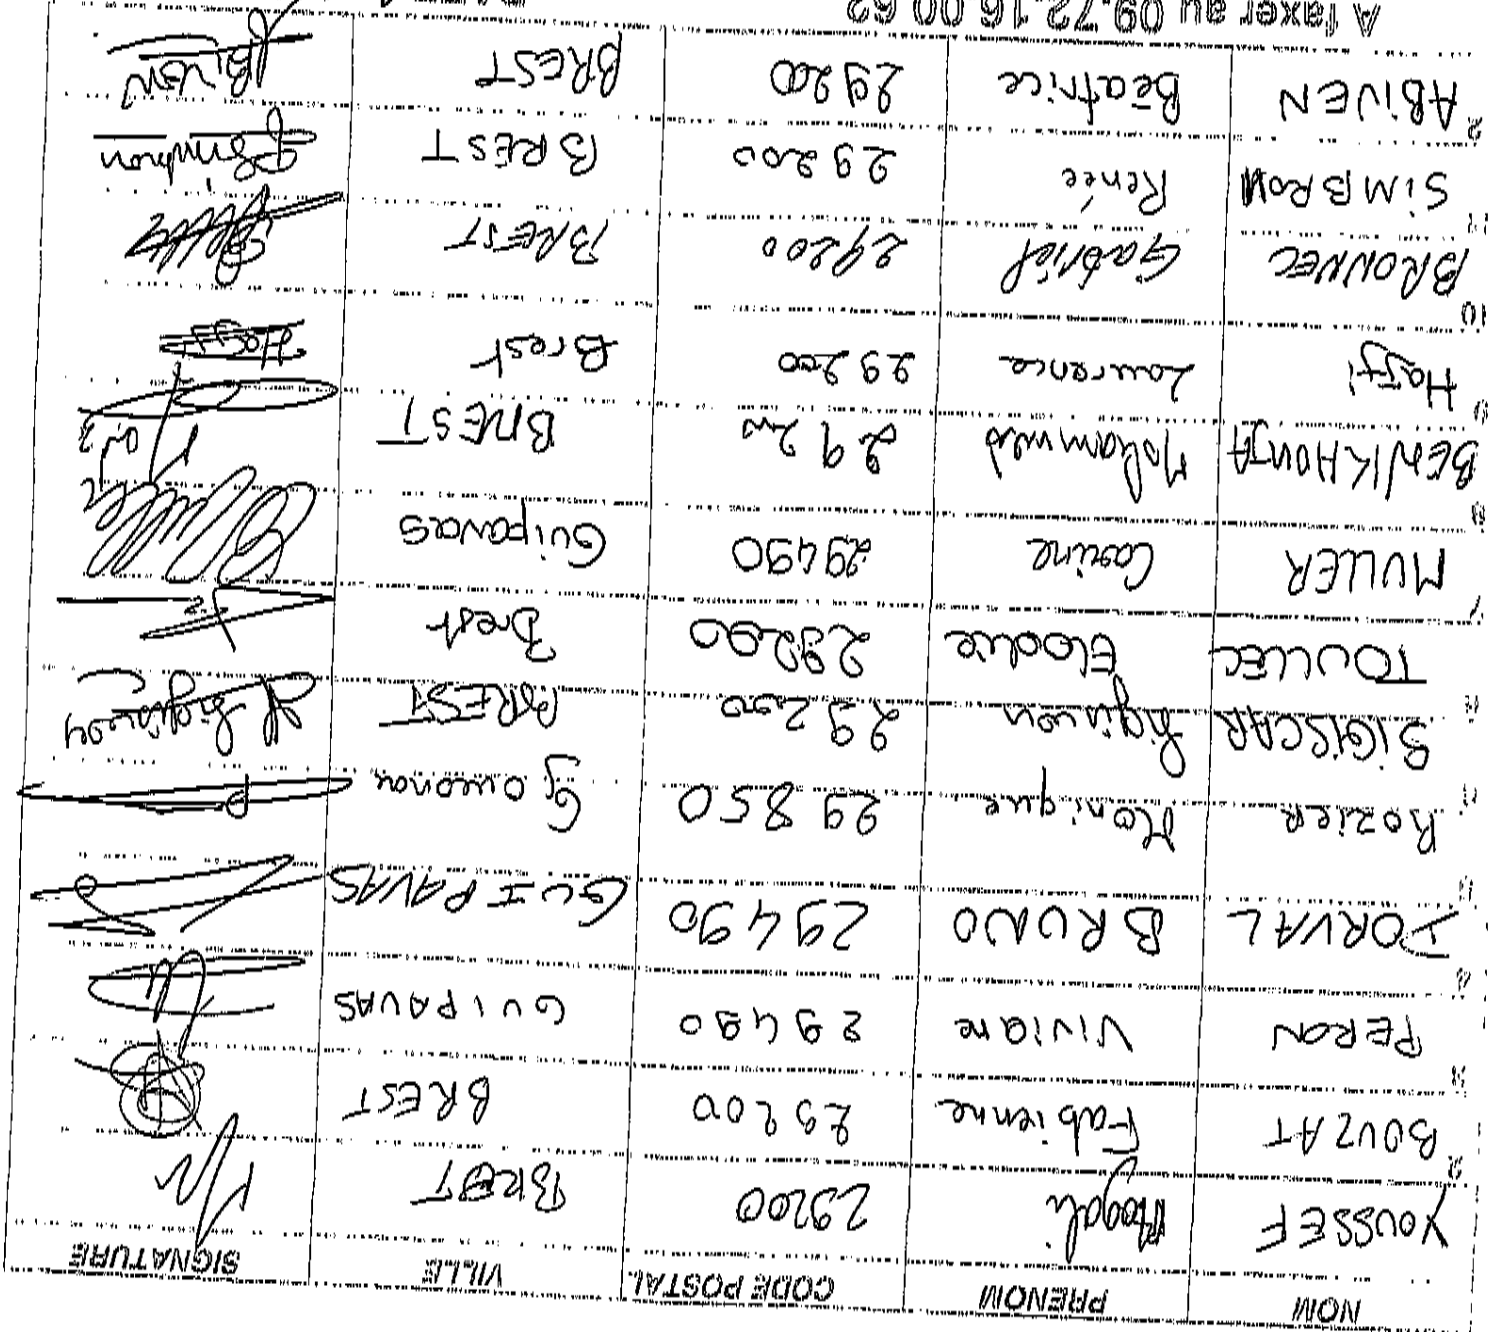 NOM PRENOM CODE POSTAL VILLE SIGNATURE
YOUSSEF Magali 29200 BREST
BOUZAT Fabienne 29200 BREST
PERON Viviane 29490 GUIPAVAS
DORVAL BRUNO 29490 GUIPAVAS
ROZIER Monique 29850 Gouesnou
SIGISCAR 29200 BREST
TOULLEC Elodie 29200 Brest
MULLER Carine 29490 Guipavas
BENKHOUJA Mohammed 29200 BREST
Haffi Laurence 29200 Brest
BROUNEC Gabriel 29200 BREST
SIMBRON Renée 29200 BREST
ABIVEN Béatrice 29200 BREST
A faxer au 09.72.16.00.62